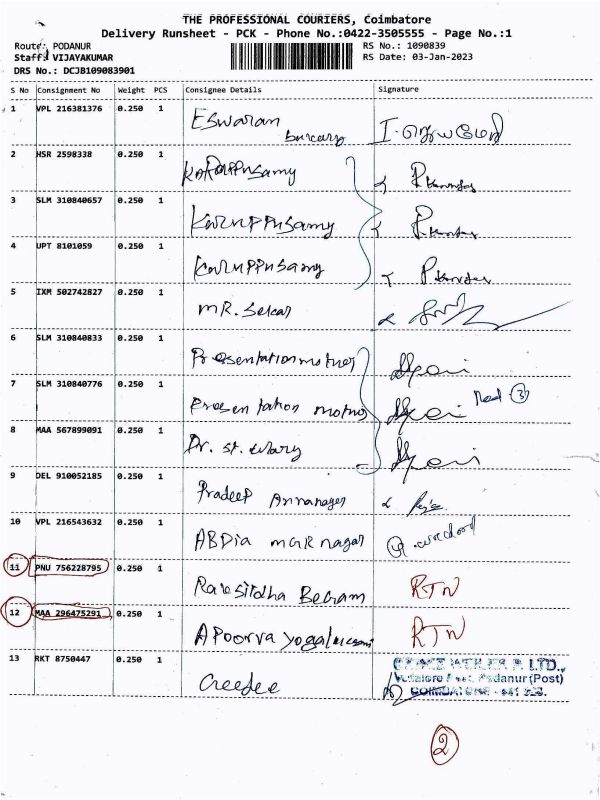 THE PROFESSIONAL COURIERS, Coimbatore
Delivery Runsheet - PCK - Phone No.:0422-3505555 - Page No.:1
Route: PODANUR RS No.: 1090839
Staff: VIJAYAKUMAR RS Date: 03-Jan-2023
DRS No.: DCJB109083901
S No Consignment No Weight PCS Consignee Details Signature
1 VPL 216381376 0.250 1 Eswaran
2 HSR 2598338 0.250 1 Karuppusamy
3 SLM 310840657 0.250 1 Karuppusamy
4 UPT 8101059 0.250 1 Karuppusamy
5 IXM 502742827 0.250 1 MR. Sekar
6 SLM 310840833 0.250 1 Presentation mother
7 SLM 310840776 0.250 1 Presentation mother
8 MAA 567899091 0.250 1 Pr. St. Mary
9 DEL 910052185 0.250 1 Pradeep Annanagar
10 VPL 216543632 0.250 1 MGR nagar
11 PNU 756228795 0.250 1 RTN
12 MAA 296475291 0.250 1 APoorva RTN
13 RKT 8750447 0.250 1 P. LTD.,
Podanur (Post)
COIMBATORE
2